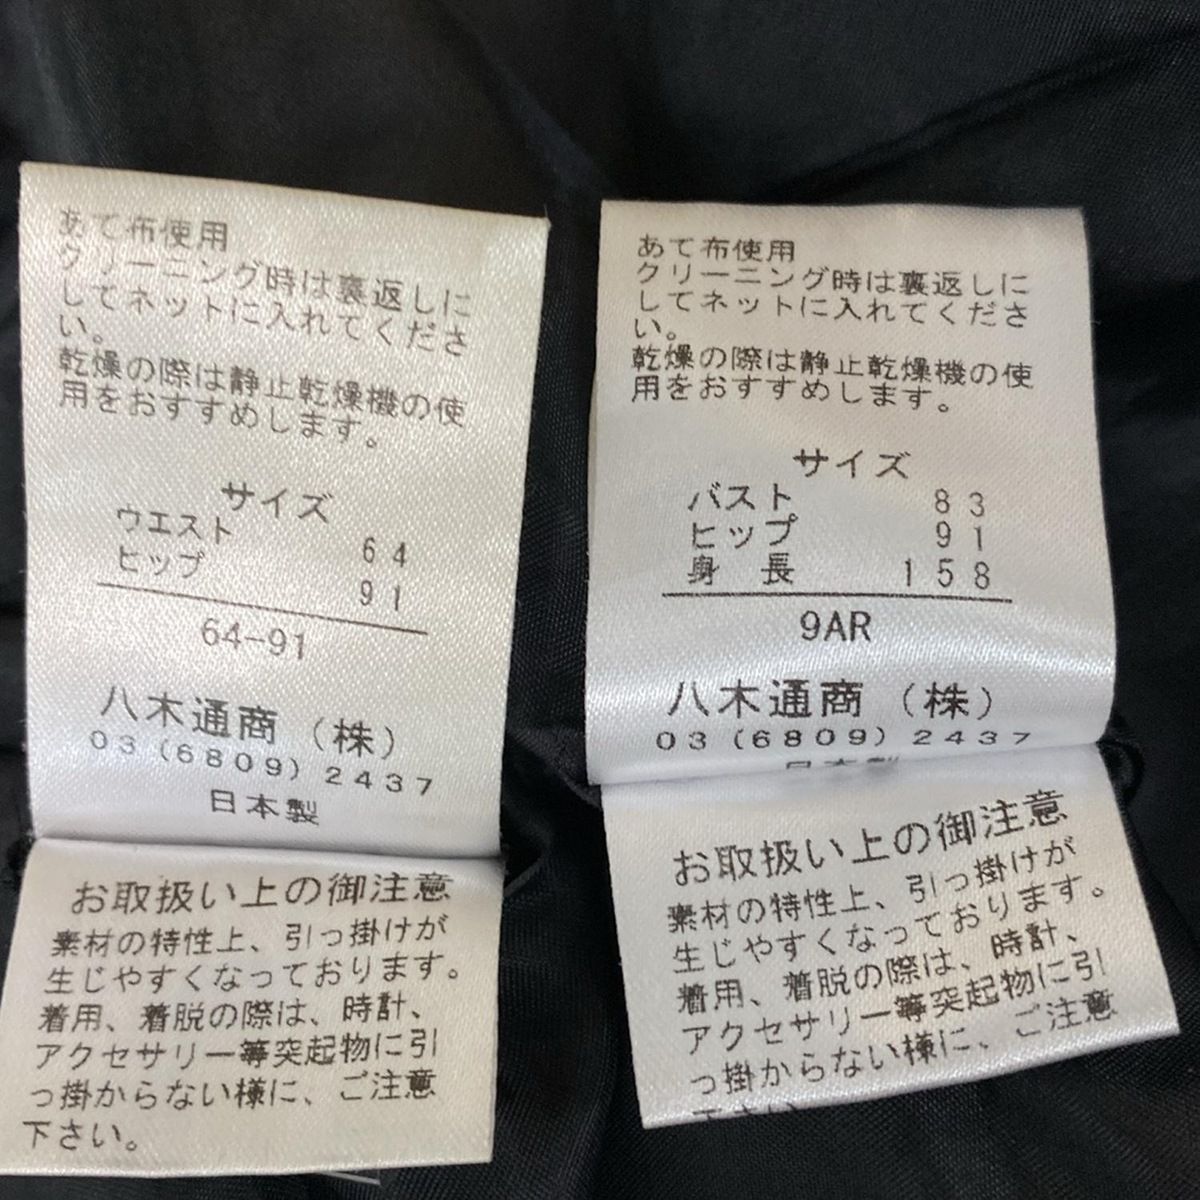 あて布使用
クリーニング時は裏返しに
してネットに入れてくださ
い。
乾燥の際は静止乾燥機の使
用をおすすめします。
サイズ
ウエスト 64
ヒップ 91
64-91
八木通商(株)
03(6809)2437
日本製
お取扱い上の御注意
素材の特性上、引っ掛けが
生じやすくなっております。
着用、着脱の際は、時計、
アクセサリー等突起物に引
っ掛からない様に、ご注意
下さい。
あて布使用
クリーニング時は裏返しに
してネットに入れてくださ
い。
乾燥の際は静止乾燥機の使
用をおすすめします。
サイズ
バスト 83
ヒップ 91
身長 158
9AR
八木通商(株)
03(6809)2437
日本製
お取扱い上の御注意
素材の特性上、引っ掛けが
生じやすくなっております。
着用、着脱の際は、時計、
アクセサリー等突起物に引
っ掛からない様に、ご注意
下さい。